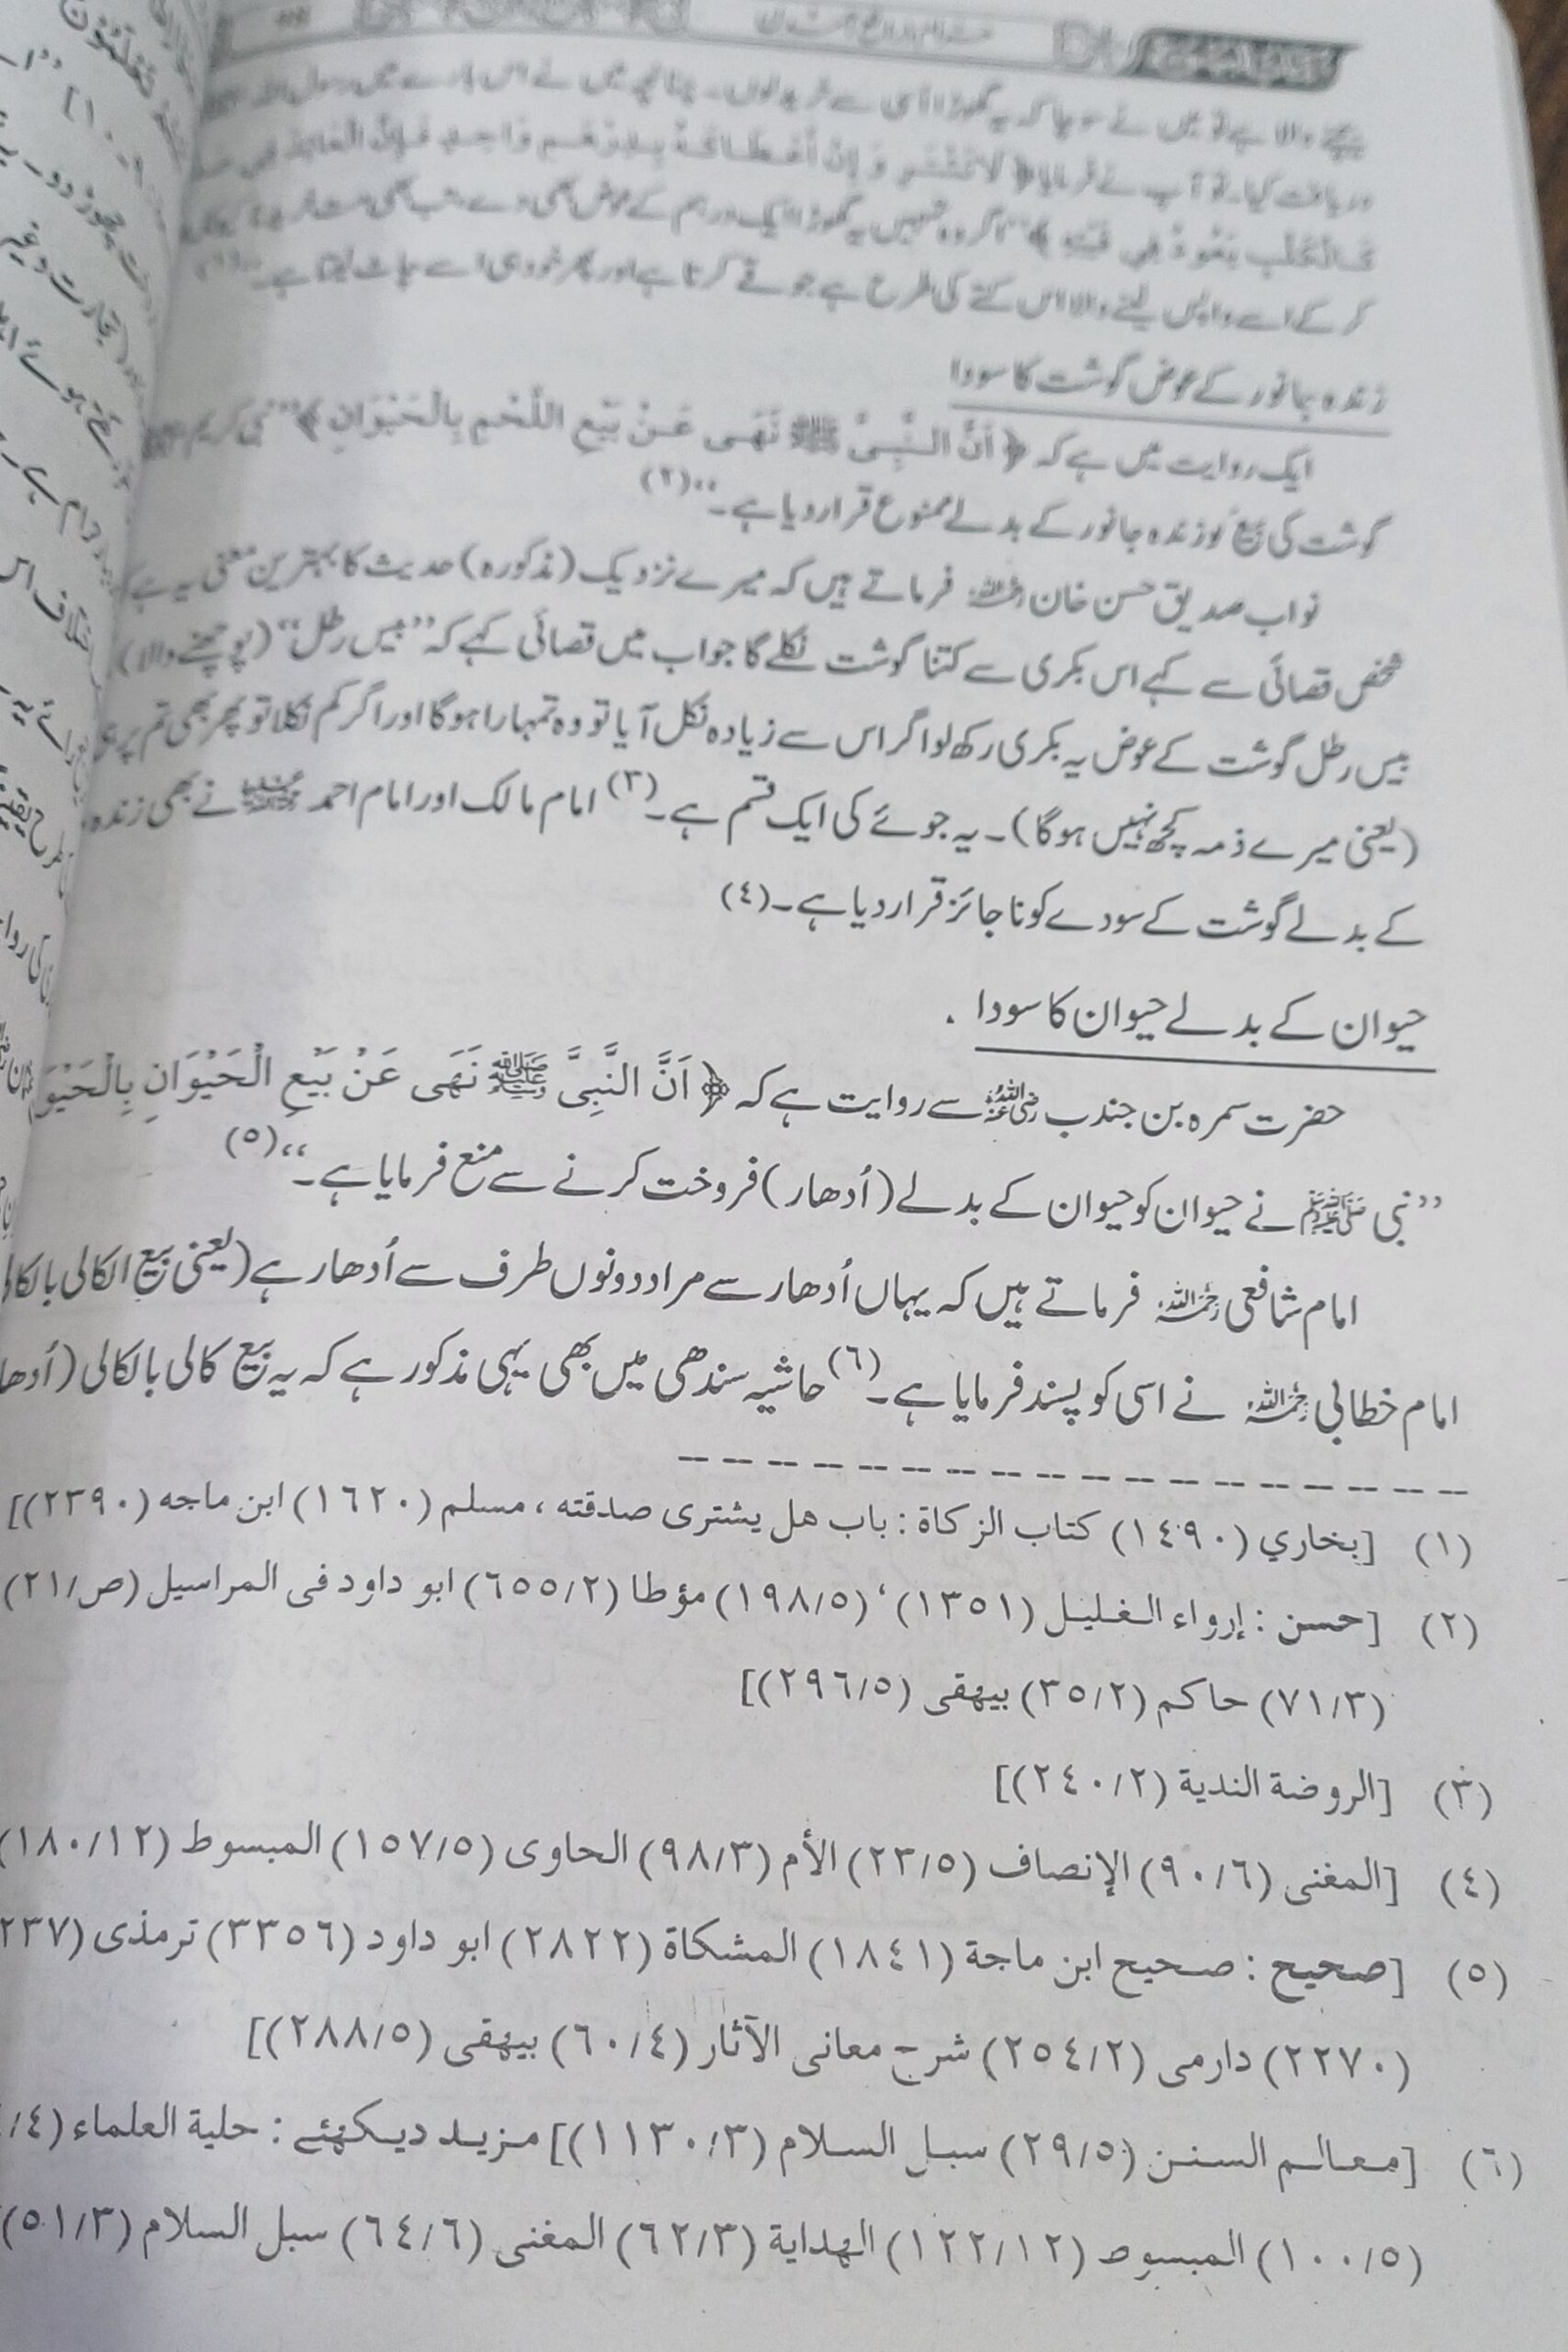 بیچنے والا ہے تو میں نے سوچا کہ یہ گھوڑا اسی سے خرید لوں۔ چنانچہ میں نے اس بارے میں رسول اللہ
دریافت کیا۔ تو آپ نے فرمایا ﴿ لَا تَشْتَرِ وَ إِنْ أَعْطَاكَهُ بِدِرْهَمٍ وَاحِدٍ فَإِنَّ الْعَائِدَ فِي
كَالْكَلْبِ يَعُودُ فِي قَيْئِهِ ﴾ ”اگر وہ تمہیں یہ گھوڑا ایک درہم کے عوض بھی دے تب بھی مت خریدو کیونکہ
کر کے اسے واپس لینے والا اس کتے کی طرح ہے جو قے کرتا ہے اور پھر خود ہی اسے چاٹ لیتا ہے۔“ (۱)
زندہ جانور کے عوض گوشت کا سودا
ایک روایت میں ہے کہ ﴿ اَنَّ النَّبِيَّ ﷺ نَهَى عَنْ بَيْعِ اللَّحْمِ بِالْحَيْوَانِ ﴾ ”نبی کریم ﷺ
گوشت کی بیع کو زندہ جانور کے بدلے ممنوع قرار دیا ہے۔“ (۲)
نواب صدیق حسن خان رحمہ اللہ فرماتے ہیں کہ میرے نزدیک (مذکورہ) حدیث کا بہترین معنی یہ ہے کہ
شخص قصائی سے کہے اس بکری سے کتنا گوشت نکلے گا جواب میں قصائی کہے کہ ”بیس رطل“ (پوچھنے والا)
بیس رطل گوشت کے عوض یہ بکری رکھ لو اگر اس سے زیادہ نکل آیا تو وہ تمہارا ہوگا اور اگر کم نکلا تو پھر بھی تم پر
(یعنی میرے ذمہ کچھ نہیں ہوگا)۔ یہ جوئے کی ایک قسم ہے۔ (۳) امام مالک اور امام احمد نے بھی زندہ
کے بدلے گوشت کے سودے کو ناجائز قرار دیا ہے۔ (٤)
حیوان کے بدلے حیوان کا سودا
حضرت سمرہ بن جندب رضی اللہ عنہ سے روایت ہے کہ ﴿ اَنَّ النَّبِيَّ ﷺ نَهَى عَنْ بَيْعِ الْحَيْوَانِ بِالْحَيْوَا
”نبی ﷺ نے حیوان کو حیوان کے بدلے (اُدھار) فروخت کرنے سے منع فرمایا ہے۔“ (٥)
امام شافعی رحمہ اللہ فرماتے ہیں کہ یہاں اُدھار سے مراد دونوں طرف سے اُدھار ہے (یعنی بیع الکالی بالکالی
امام خطابی رحمہ اللہ نے اسی کو پسند فرمایا ہے۔ (٦) حاشیہ سندھی میں بھی یہی مذکور ہے کہ یہ بیع کالی بالکالی (اُدھا
(١) [بخاري (١٤٩٠) كتاب الزكاة : باب هل يشترى صدقته ، مسلم (١٦٢٠) ابن ماجه (٢٣٩٠)]
(٢) [حسن : إرواء الغليل (١٣٥١)، (١٩٨/٥) مؤطا (٦٥٥/٢) ابو داود فى المراسيل (ص/٢١)
(٧١/٣) حاكم (٣٥/٢) بيهقى (٢٩٦/٥)]
(٣) [الروضة الندية (٢٤٠/٢)]
(٤) [المغنى (٩٠/٦) الإنصاف (٢٣/٥) الأم (٩٨/٣) الحاوى (١٥٧/٥) المبسوط (١٨٠/١٢)
(٥) [صحيح : صحيح ابن ماجة (١٨٤١) المشكاة (٢٨٢٢) ابو داود (٣٣٥٦) ترمذى (٢٣٧
(٢٢٧٠) دارمى (٢٥٤/٢) شرح معانى الآثار (٦٠/٤) بيهقى (٢٨٨/٥)]
(٦) [معالم السنن (٢٩/٥) سبل السلام (١١٣٠/٣)] مزيد ديكهئے : حلية العلماء (٤/
(١٠٠/٥) المبسوط (١٢٢/١٢) الهداية (٦٢/٣) المغنى (٦٤/٦) سبل السلام (٥١/٣)